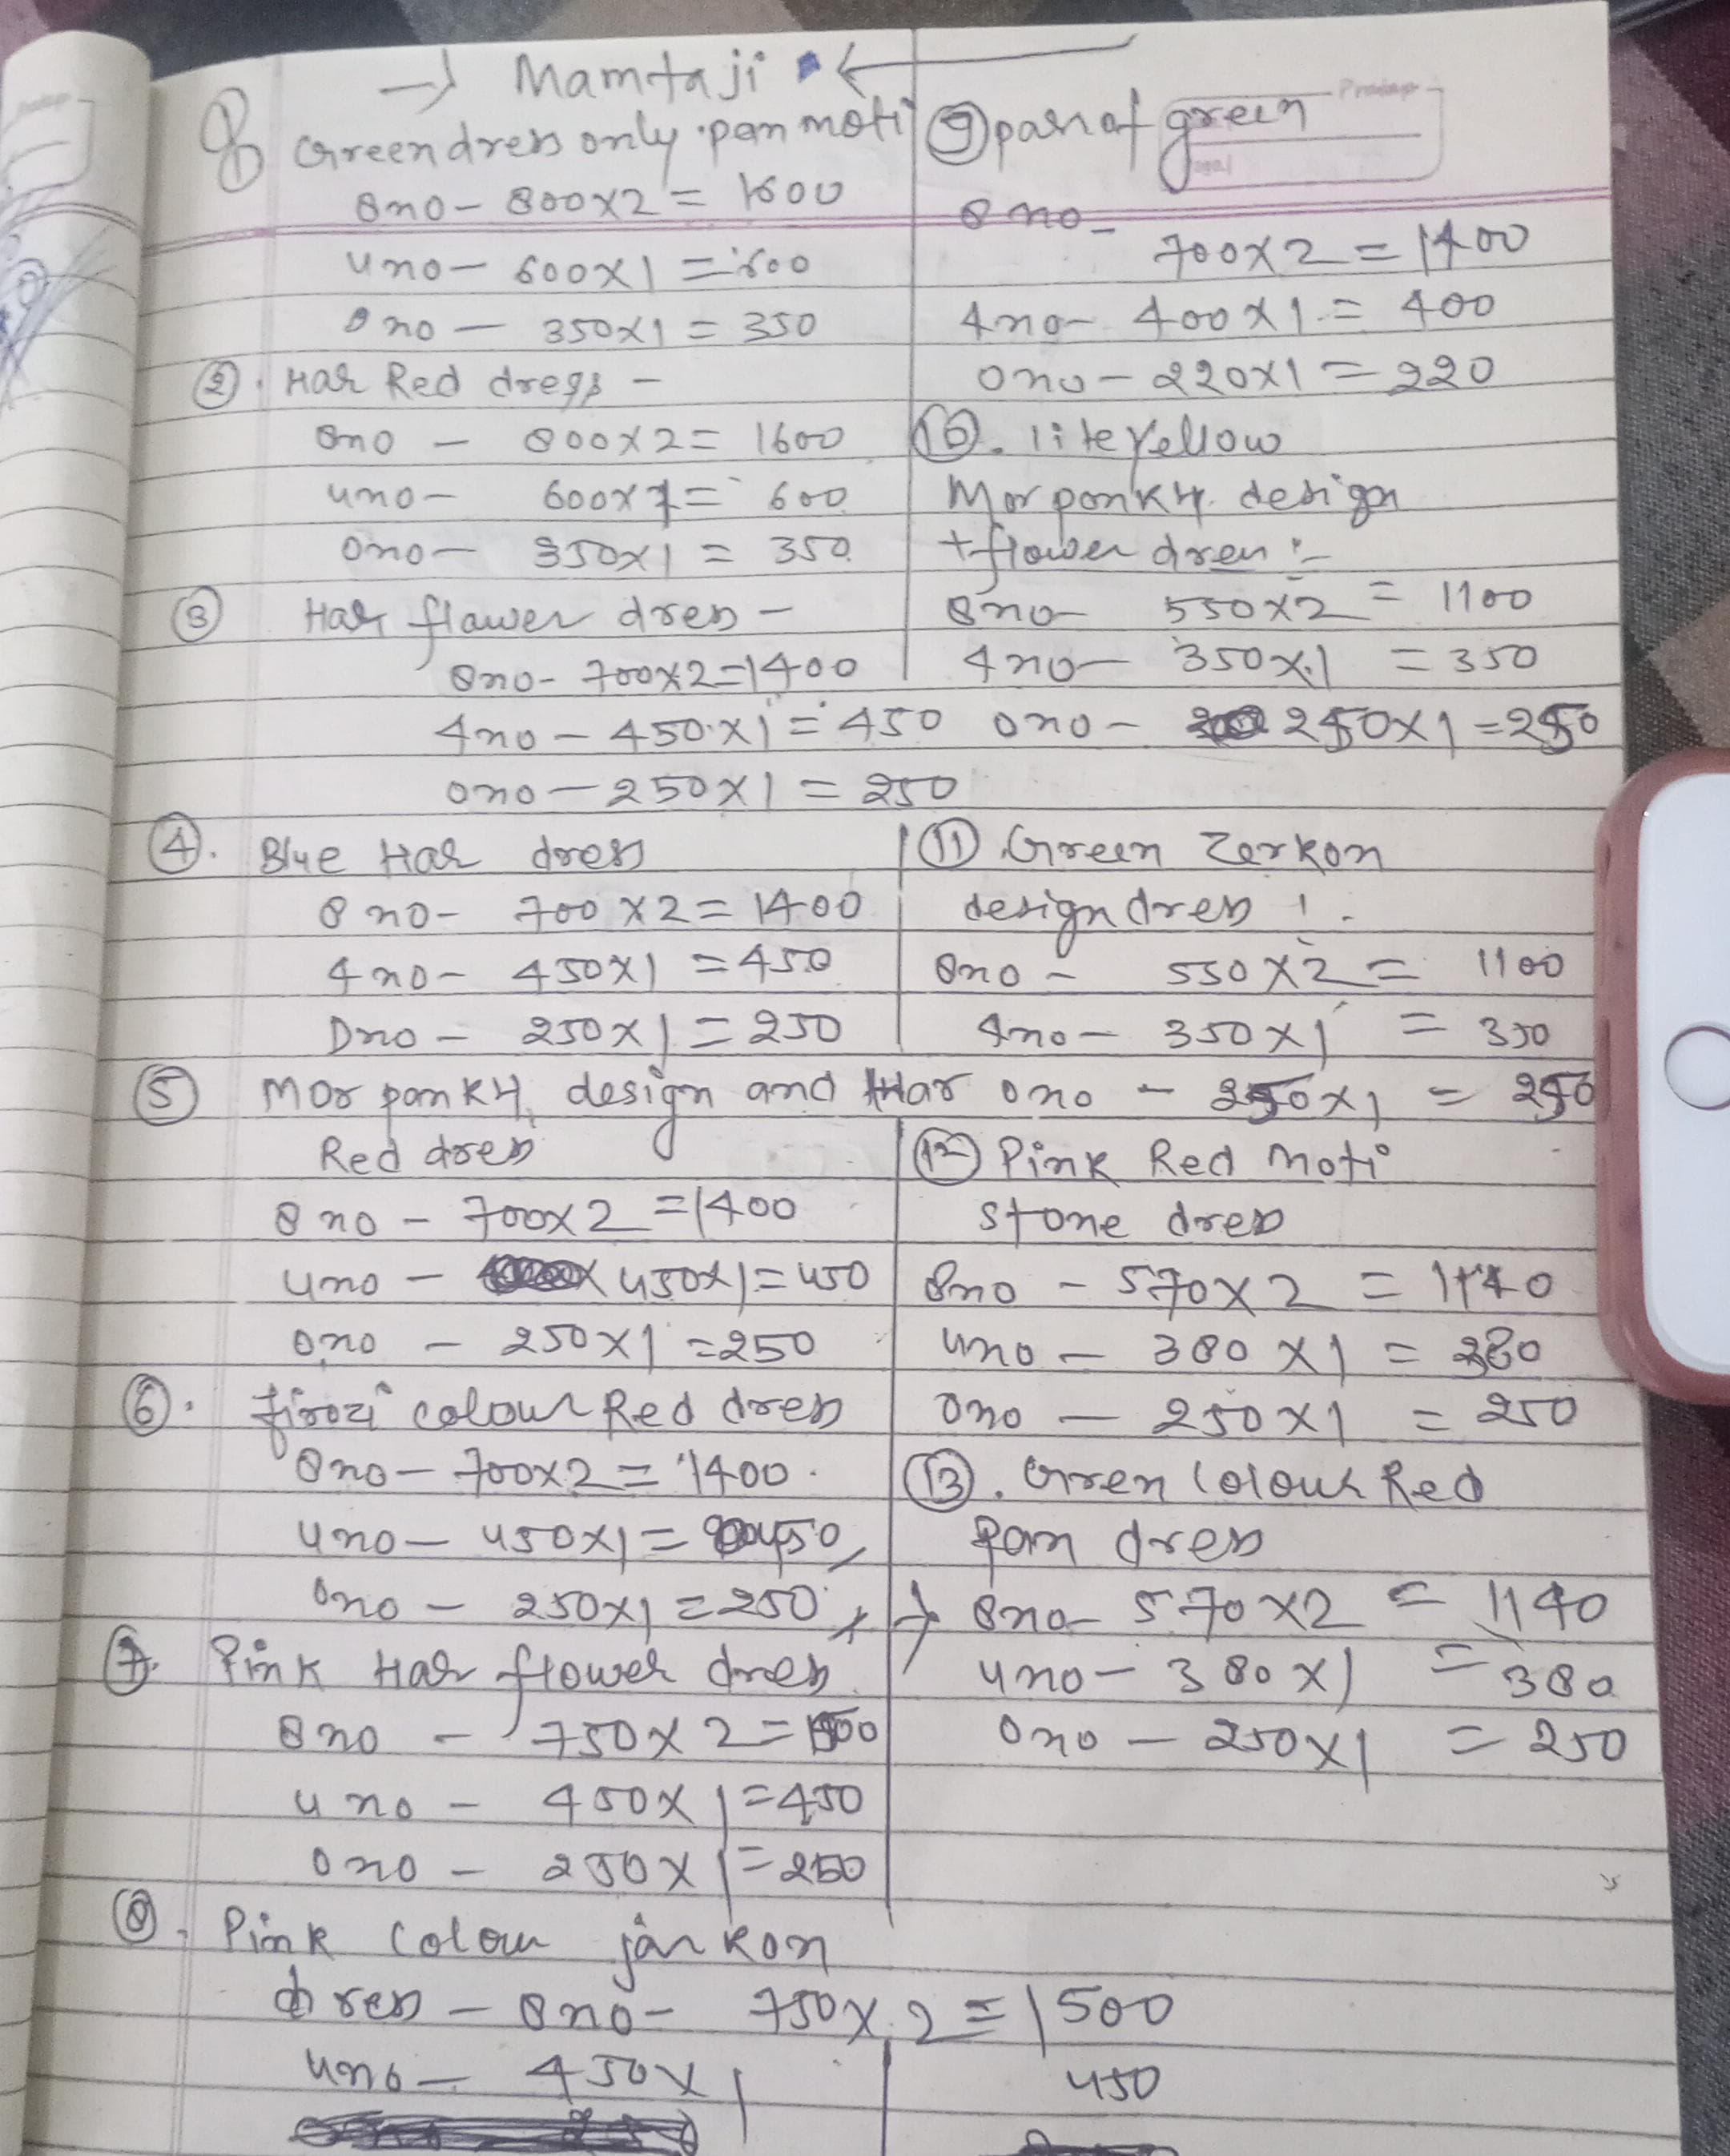 → Mamtaji ←
① Green dress only pan moti
8no - 800x2 = 1600
4no - 600x1 = 600
0no - 350x1 = 350
②. Har Red dress -
8no - 800x2 = 1600
4no - 600x1 = 600
0no - 350x1 = 350
③ Har flawer dress -
8no - 700x2 = 1400
4no - 450x1 = 450
0no - 250x1 = 250
④. Blue Har dress
8no - 700x2 = 1400
4no - 450x1 = 450
0no - 250x1 = 250
⑤ Mor pankH design and Har
Red dress
8no - 700x2 = 1400
4no - 450x1 = 450
0no - 250x1 = 250
⑥. firozi colour Red dress
8no - 700x2 = 1400.
4no - 450x1 = 450
0no - 250x1 = 250
⑦. Pink Har flower dress
8no - 750x2 = 1500
4no - 450x1 = 450
0no - 250x1 = 250
⑧. Pink colour jarkon
dress - 8no - 750x2 = 1500
4no - 450x1 450
⑨ pan of green
8no -
700x2 = 1400
4no - 400x1 = 400
0no - 220x1 = 220
⑩. lite Yellow
Mor ponkH design
+ flower dress :-
8no - 550x2 = 1100
4no - 350x1 = 350
0no - 250x1 = 250
⑪ Green Zerkon
design dress :-
8no - 550x2 = 1100
4no - 350x1 = 350
0no - 250x1 = 250
⑫ Pink Red Moti
stone dress
8no - 570x2 = 1140
4no - 380x1 = 380
0no - 250x1 = 250
⑬. Green Colour Red
Pan dress
→ 8no - 570x2 = 1140
4no - 380x1 = 380
0no - 250x1 = 250